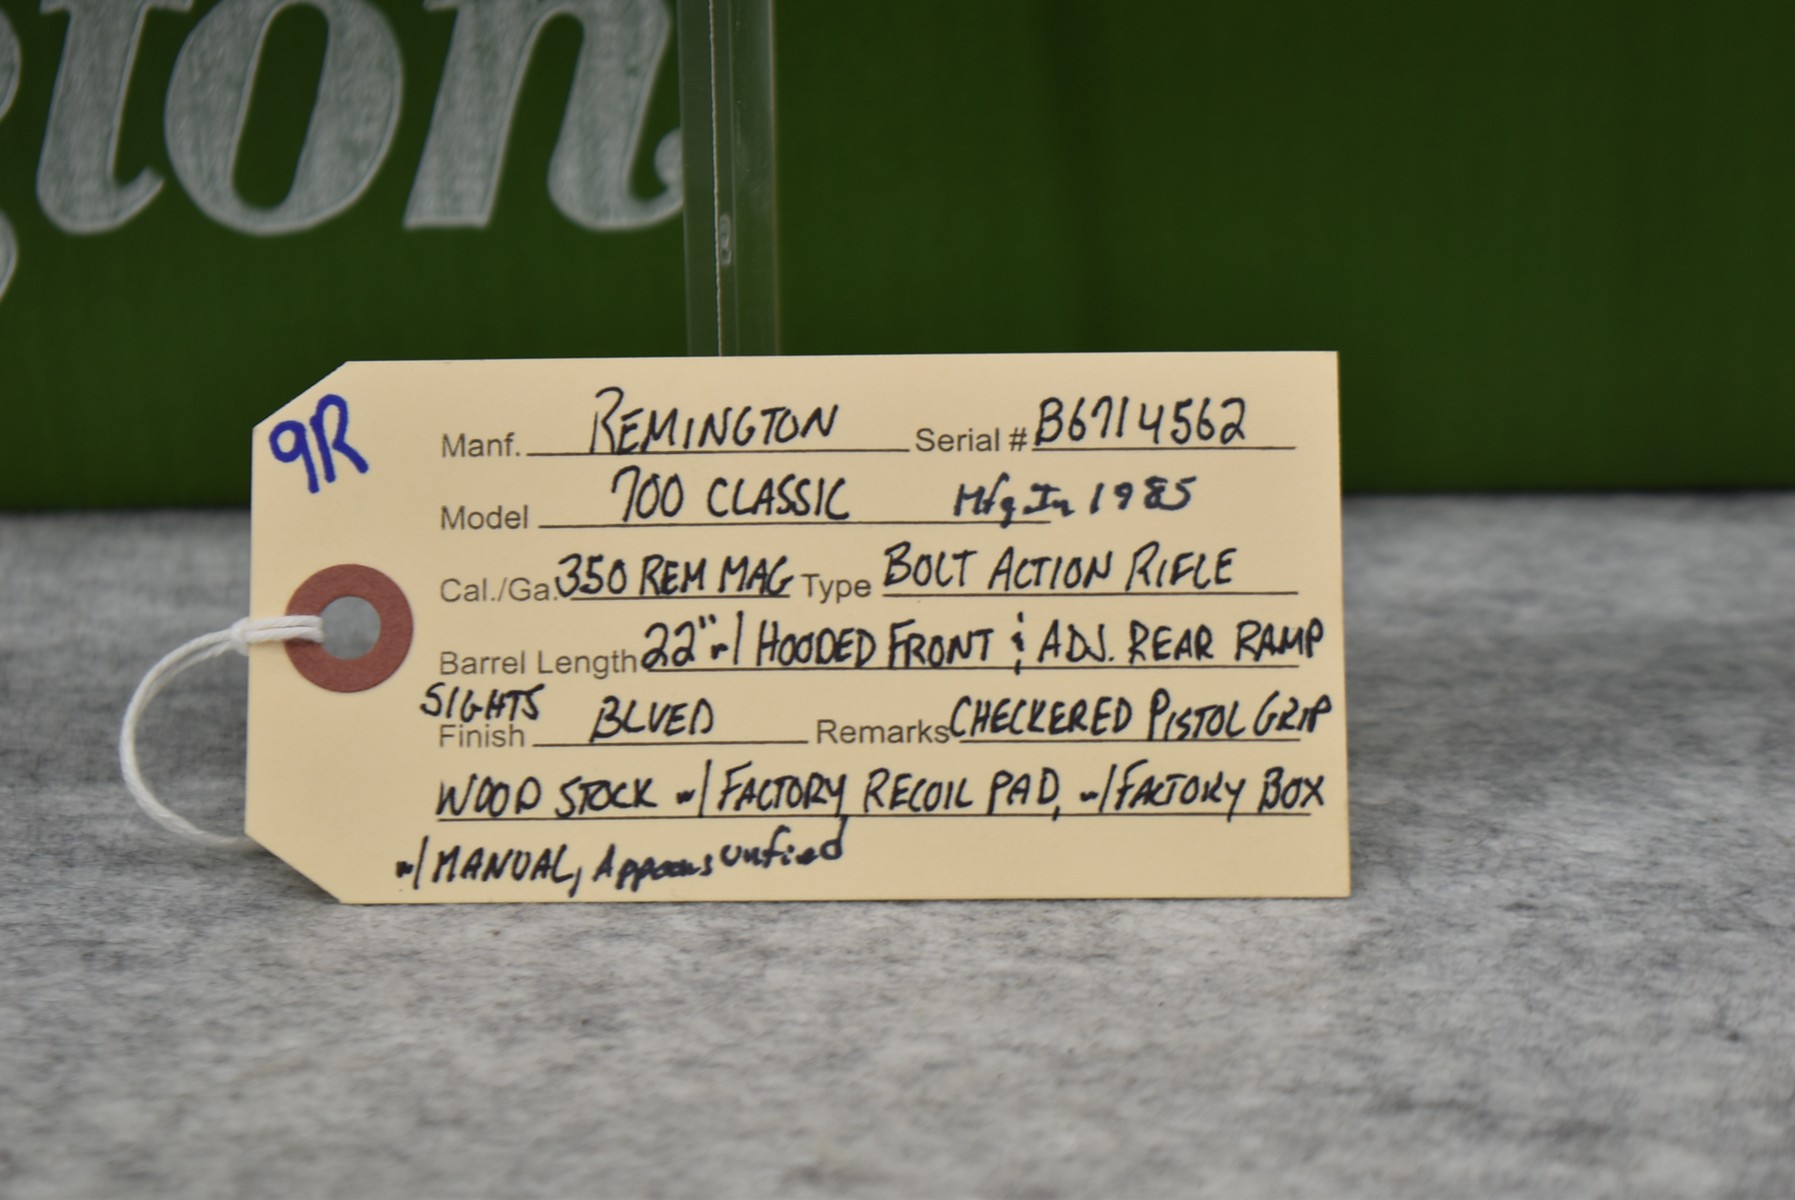 gton
9R
Manf. REMINGTON Serial # B6714562
Model 700 CLASSIC Mfg In 1985
Cal./Ga. 350 REM MAG Type BOLT ACTION RIFLE
Barrel Length 22" w/ HOODED FRONT & ADJ. REAR RAMP
SIGHTS
Finish BLUED Remarks CHECKERED PISTOL GRIP
WOOD STOCK w/ FACTORY RECOIL PAD, w/ FACTORY BOX
w/ MANUAL, Appears unfired